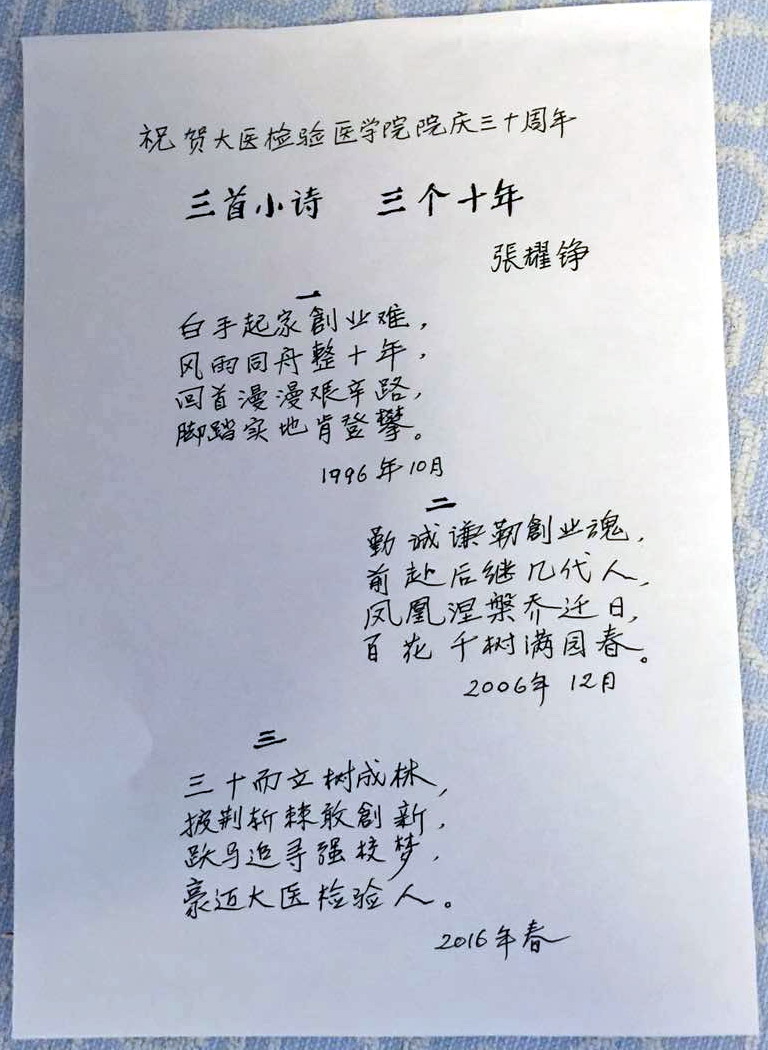 祝贺大医检验医学院院庆三十周年
三首小诗 三个十年
張耀铮
一
白手起家創业难，
风雨同舟整十年，
回首漫漫艰辛路，
脚踏实地肯登攀。
1996年10月
二
勤诚谦勒創业魂，
前赴后继几代人，
凤凰涅槃乔迁日，
百花千树满园春。
2006年12月
三
三十而立树成林，
披荆斩棘敢創新，
跃马追寻强校梦，
豪迈大医检验人。
2016年春